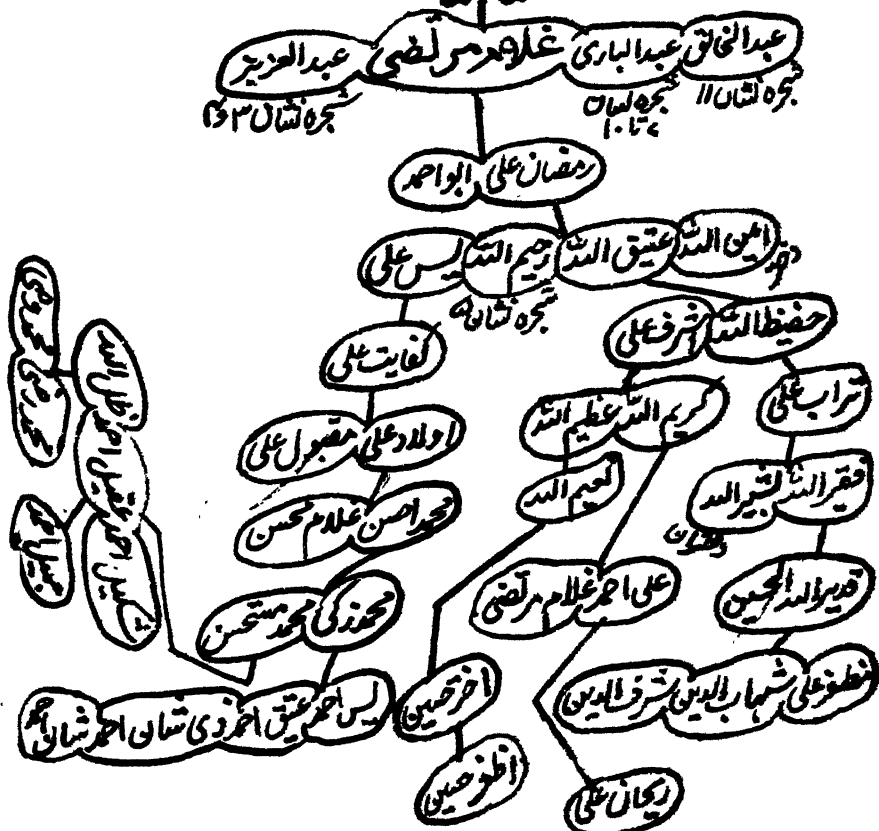 عبدالخالق عبدالباری غلام مرتضی عبدالعزیز
شجرہ نشان ۱۱
شجرہ نشان ۷ تا ۱۰
شجرہ نشان ۳ و ۴
رمضان علی ابو احمد
امین اللہ عتیق اللہ رحیم اللہ لیس علی
شجرہ نشان ۵
حفیظ اللہ اشرف علی
کفایت علی
تراب علی
کریم اللہ عظیم اللہ
اولاد علی مقبول علی
فقیر اللہ بشیر اللہ
نعیم اللہ
محمد احسن غلام محسن
قدیر اللہ الحسین
علی احمد غلام مرتضی
محمد زکی محمد مستحسن
مظفر علی شہاب الدین شرف الدین
اختر حسین
لیس احمد عتیق احمد ذی شان احمد شان احمد
اظفر حسین
ریحان علی